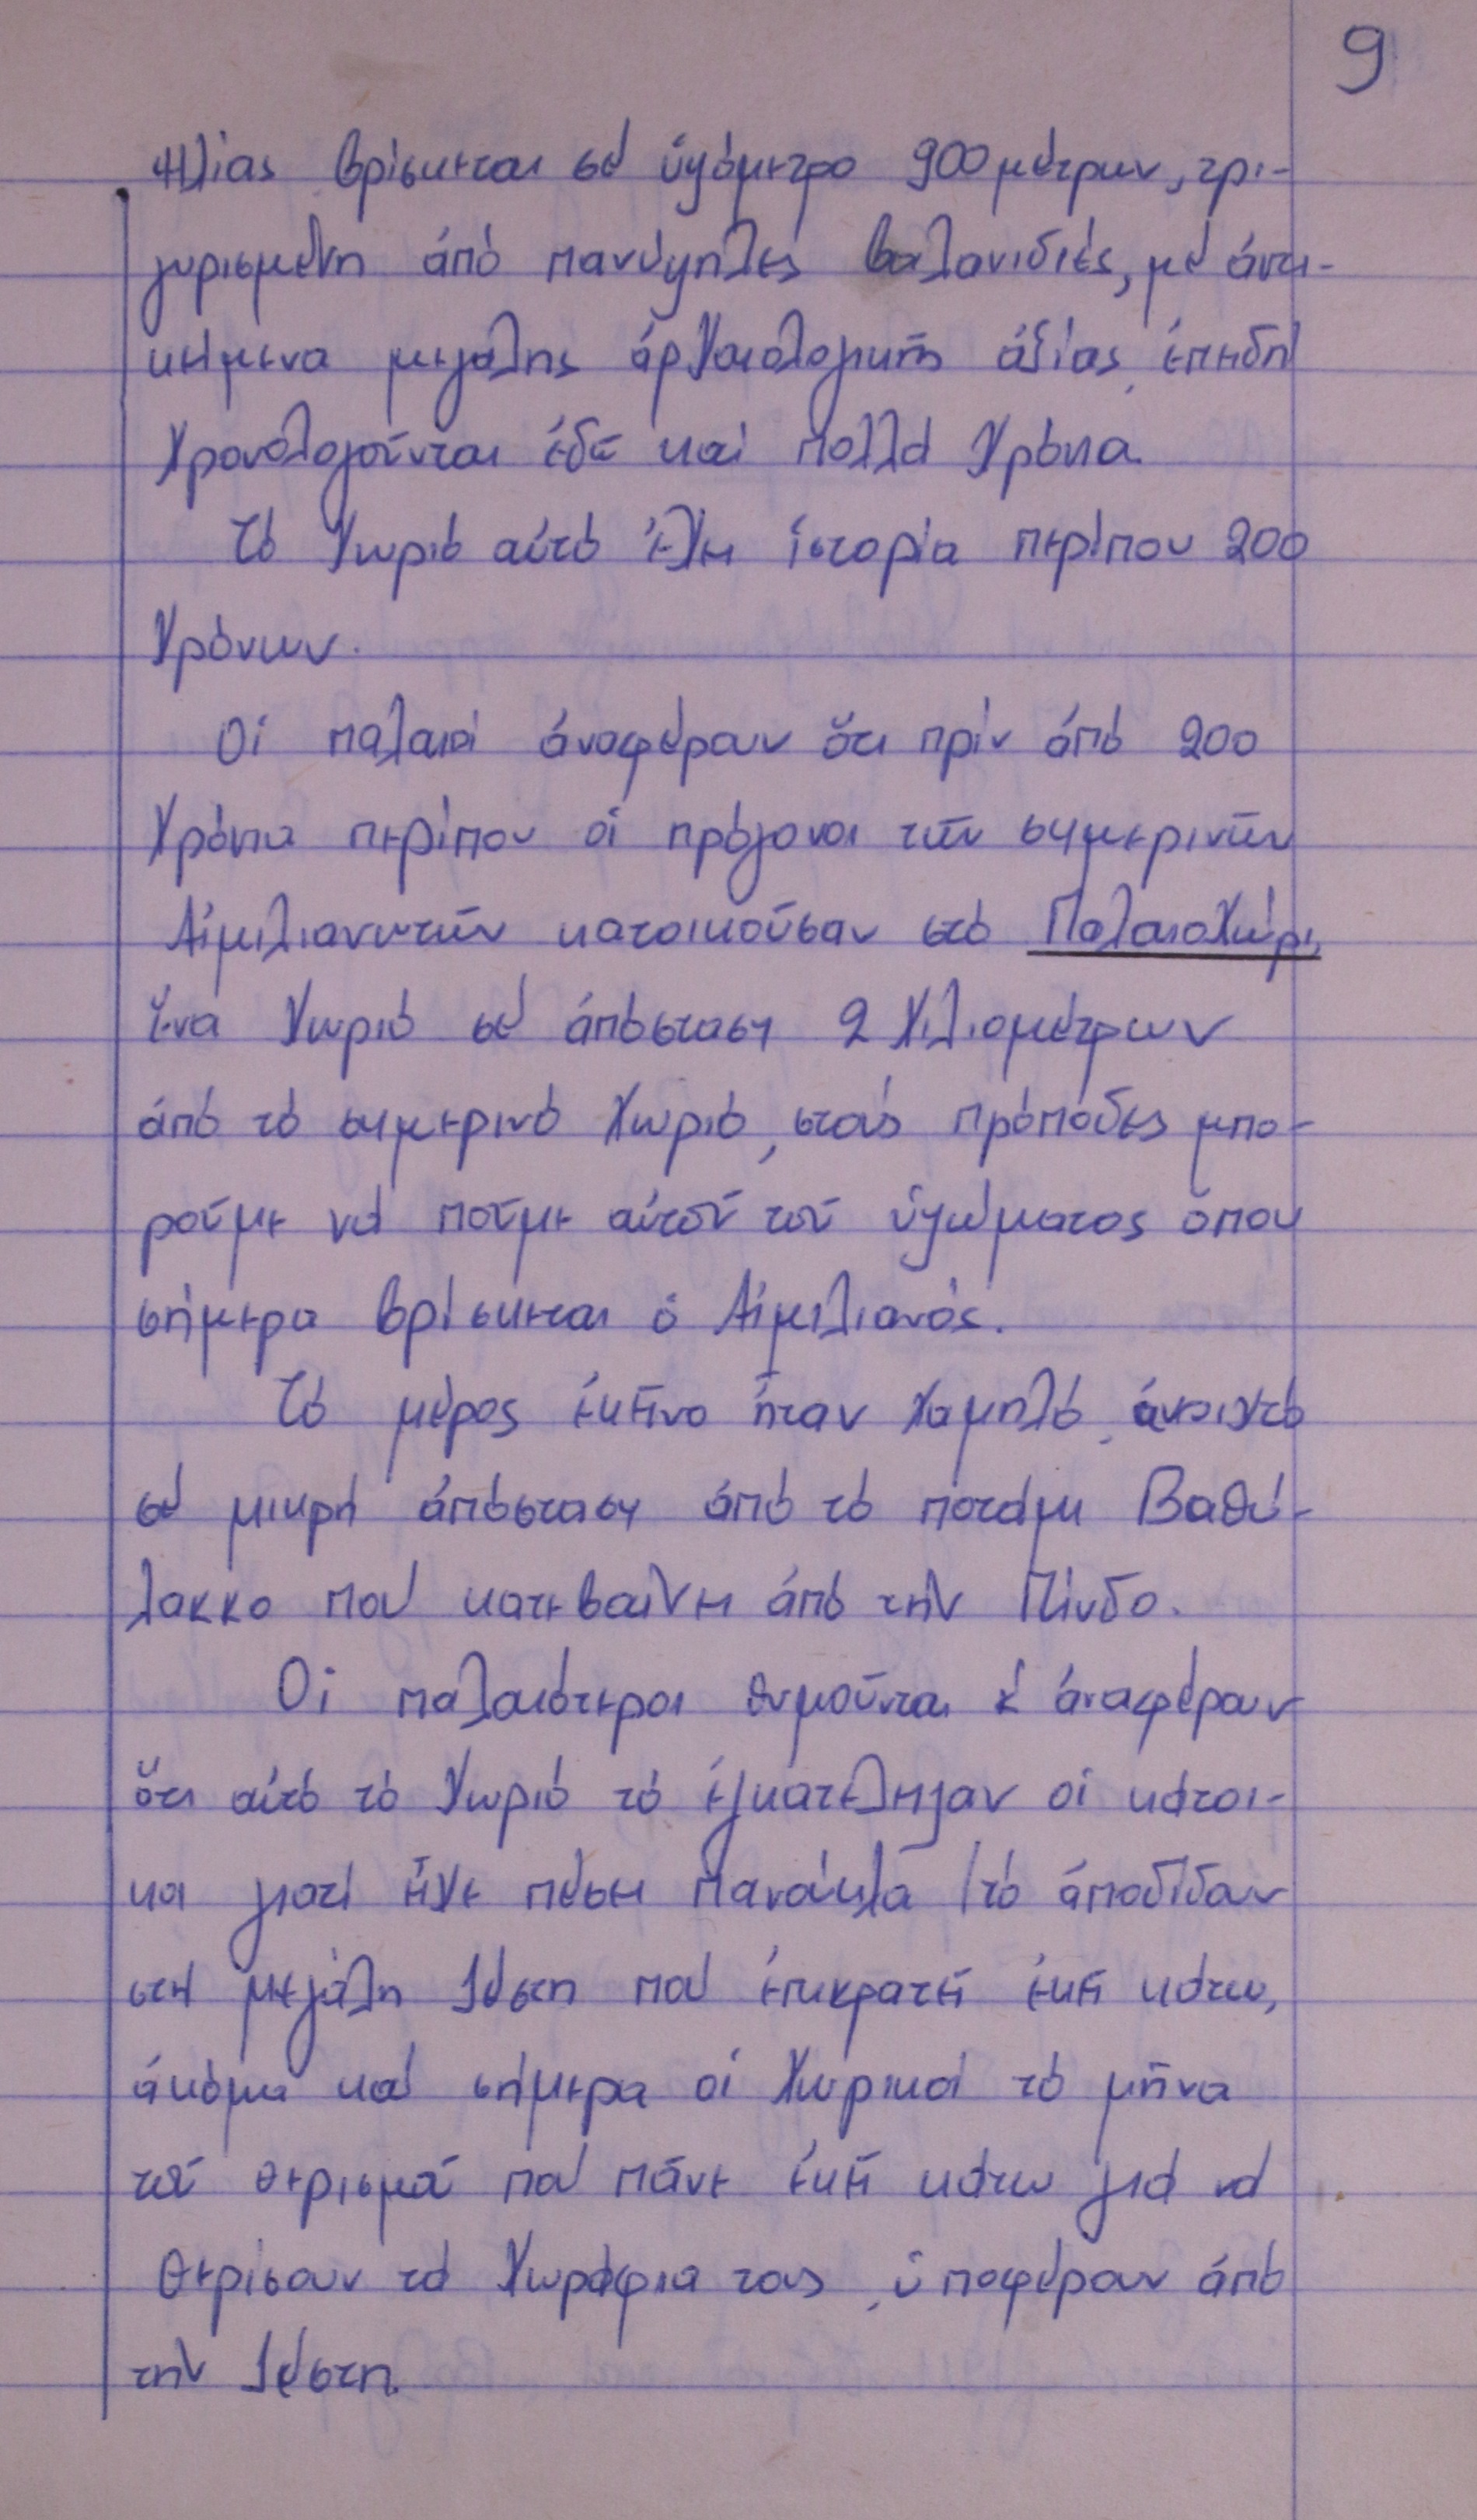 9
Ηλίας βρίσκεται σέ ὑψόμετρο 900 μέτρων, τρι-
γυρισμένη ἀπό πανύψηλες βαλανιδιές, μέ ἀντι-
κείμενα μεγάλης ἀρχαιολογικῆς ἀξίας, ἐπειδή
χρονολογοῦνται ἐδῶ καί πολλά χρόνια.
Τό χωριό αὐτό ἔχει ἱστορία περίπου 200
χρόνων.
Οἱ παλαιοί ἀναφέρουν ὅτι πρίν ἀπό 200
χρόνια περίπου οἱ πρόγονοι τῶν σημερινῶν
Αἰμιλιανωτῶν κατοικοῦσαν στό Παλαιοχώρι,
ἕνα χωριό σέ ἀπόσταση 2 χιλιομέτρων
ἀπό τό σημερινό χωριό, στούς πρόποδες μπο-
ροῦμε νά ποῦμε αὐτοῦ τοῦ ὑψώματος ὅπου
σήμερα βρίσκεται ὁ Αἰμιλιανός.
Τό μέρος ἐκεῖνο ἦταν χαμηλό, ἀνοιχτό
σέ μικρή ἀπόσταση ἀπό τό ποτάμι Βαθύ-
λακκο πού κατεβαίνει ἀπό τήν Πίνδο.
Οἱ παλαιότεροι θυμοῦνται κ' ἀναφέρουν
ὅτι αὐτό τό χωριό τό ἐγκατέλειψαν οἱ κάτοι-
κοι γιατί εἶχε πέσει πανούκλα /τό ἀποδίδουν
στή μεγάλη ζέστη πού ἐπικρατεῖ ἐκεῖ κάτω,
ἀκόμα καί σήμερα οἱ χωρικοί τό μῆνα
τοῦ θερισμοῦ πού πᾶνε ἐκεῖ κάτω γιά νά
θερίσουν τά χωράφια τους, ὑποφέρουν ἀπό
τήν ζέστη.